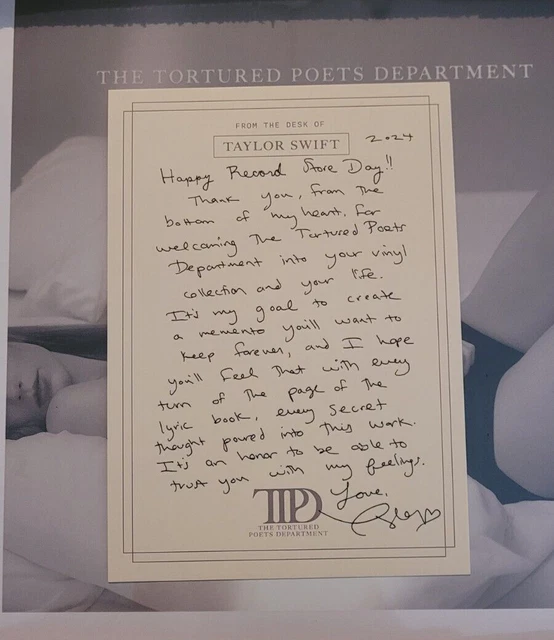 THE TORTURED POETS DEPARTMENT
FROM THE DESK OF
TAYLOR SWIFT
2024
Happy Record Store Day!!
Thank you, from the
bottom of my heart, for
welcoming The Tortured Poets
Department into your vinyl
collection and your life.
It's my goal to create
a memento you'll want to
keep forever, and I hope
you'll feel that with every
turn of the page of the
lyric book, every secret
thought poured into this work.
It's an honor to be able to
trust you with my feelings.
Love,
TTPD
THE TORTURED
POETS DEPARTMENT